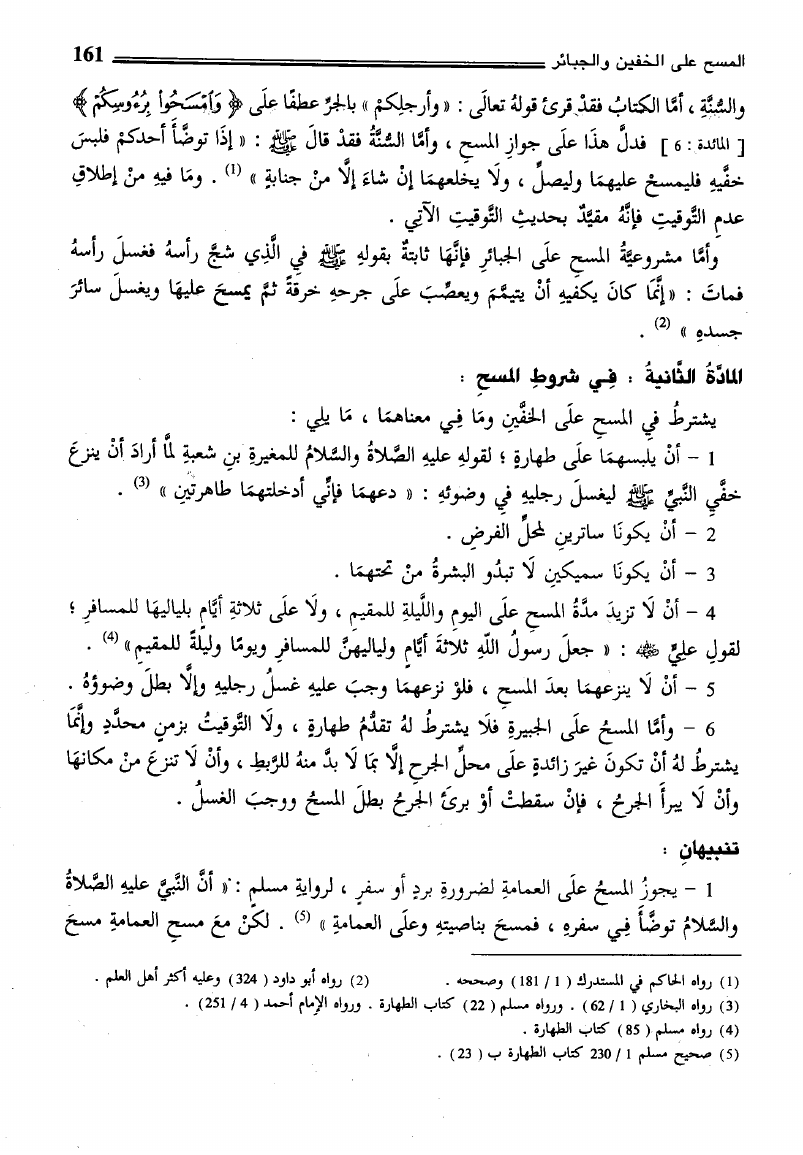 المسح على الخفين والجبائر 161
والسُّنَّةِ ، أمَّا الكتابُ فقدْ قرئ قولهُ تعالَى : « وأرجلِكمْ » بالجرِّ عطفًا علَى ﴿ وَٱمْسَحُوا۟ بِرُءُوسِكُمْ ﴾
[ المائدة : 6 ] فدلَّ هذَا علَى جوازِ المسحِ ، وأمَّا السُّنَّةُ فقدْ قالَ ﷺ : « إذَا توضَّأَ أحدكمْ فلبسَ
خفَّيهِ فليمسحْ عليهمَا وليصلِّ ، ولَا يخلعهمَا إنْ شاءَ إلَّا منْ جنابةٍ » (1) . ومَا فيهِ منْ إطلاقِ
عدمِ التَّوقيتِ فإنَّهُ مقيَّدٌ بحديثِ التَّوقيتِ الآتِي .
وأمَّا مشروعيَّةُ المسحِ علَى الجبائرِ فإنَّهَا ثابتةٌ بقولهِ ﷺ في الَّذِي شجَّ رأسهُ فغسلَ رأسهُ
فماتَ : « إنَّمَا كانَ يكفيهِ أنْ يتيمَّمَ ويعصِّبَ علَى جرحهِ خرقةً ثمَّ يمسحَ عليهَا ويغسلَ سائرَ
جسدهِ » (2) .
المادَّةُ الثَّانيةُ : فِي شروطِ المسحِ :
يشترطُ في المسحِ علَى الخفَّينِ ومَا فِي معناهمَا ، مَا يلِي :
1 - أنْ يلبسهمَا علَى طهارةٍ ؛ لقولهِ عليهِ الصَّلاةُ والسَّلامُ للمغيرةِ بنِ شعبةِ لمَّا أرادَ أنْ ينزعَ
خفَّيِ النَّبيِّ ﷺ ليغسلَ رجليهِ فِي وضوئهِ : « دعهمَا فإنِّي أدخلتهمَا طاهرتَينِ » (3) .
2 - أنْ يكونَا ساترينِ لمحلِّ الفرضِ .
3 - أنْ يكونَا سميكينِ لَا تبدُو البشرةُ منْ تحتهمَا .
4 - أنْ لَا تزيدَ مدَّةُ المسحِ علَى اليومِ واللَّيلةِ للمقيمِ ، ولَا علَى ثلاثةِ أيَّامٍ بلياليهَا للمسافرِ ؛
لقولِ عليٍّ رضي الله عنه : « جعلَ رسولُ اللَّهِ ثلاثةَ أيَّامٍ ولياليهنَّ للمسافرِ ويومًا وليلةً للمقيمِ» (4) .
5 - أنْ لَا ينزعهمَا بعدَ المسحِ ، فلوْ نزعهمَا وجبَ عليهِ غسلُ رجليهِ وإلَّا بطلَ وضوؤهُ .
6 - وأمَّا المسحُ علَى الجبيرةِ فلَا يشترطُ لهُ تقدُّمُ طهارةٍ ، ولَا التَّوقيتُ بزمنٍ محدَّدٍ وإنَّمَا
يشترطُ لهُ أنْ تكونَ غيرَ زائدةٍ علَى محلِّ الجرحِ إلَّا بمَا لَا بدَّ منهُ للرَّبطِ ، وأنْ لَا تنزعَ منْ مكانهَا
وأنْ لَا يبرأَ الجرحُ ، فإنْ سقطتْ أوْ برئَ الجرحُ بطلَ المسحُ ووجبَ الغسلُ .
تنبيهانِ :
1 - يجوزُ المسحُ علَى العمامةِ لضرورةِ بردٍ أو سفرٍ ، لروايةِ مسلمٍ : « أنَّ النَّبيَّ عليهِ الصَّلاةُ
والسَّلامُ توضَّأَ فِي سفرهِ ، فمسحَ بناصيتهِ وعلَى العمامةِ » (5) . لكنْ معَ مسحِ العمامةِ مسحَ
(1) رواه الحاكم في المستدرك ( 1 / 181 ) وصححه . (2) رواه أبو داود ( 324 ) وعليه أكثر أهل العلم .
(3) رواه البخاري ( 1 / 62 ) . ورواه مسلم ( 22 ) كتاب الطهارة . ورواه الإمام أحمد ( 4 / 251 ) .
(4) رواه مسلم ( 85 ) كتاب الطهارة .
(5) صحيح مسلم 1 / 230 كتاب الطهارة ب ( 23 ) .